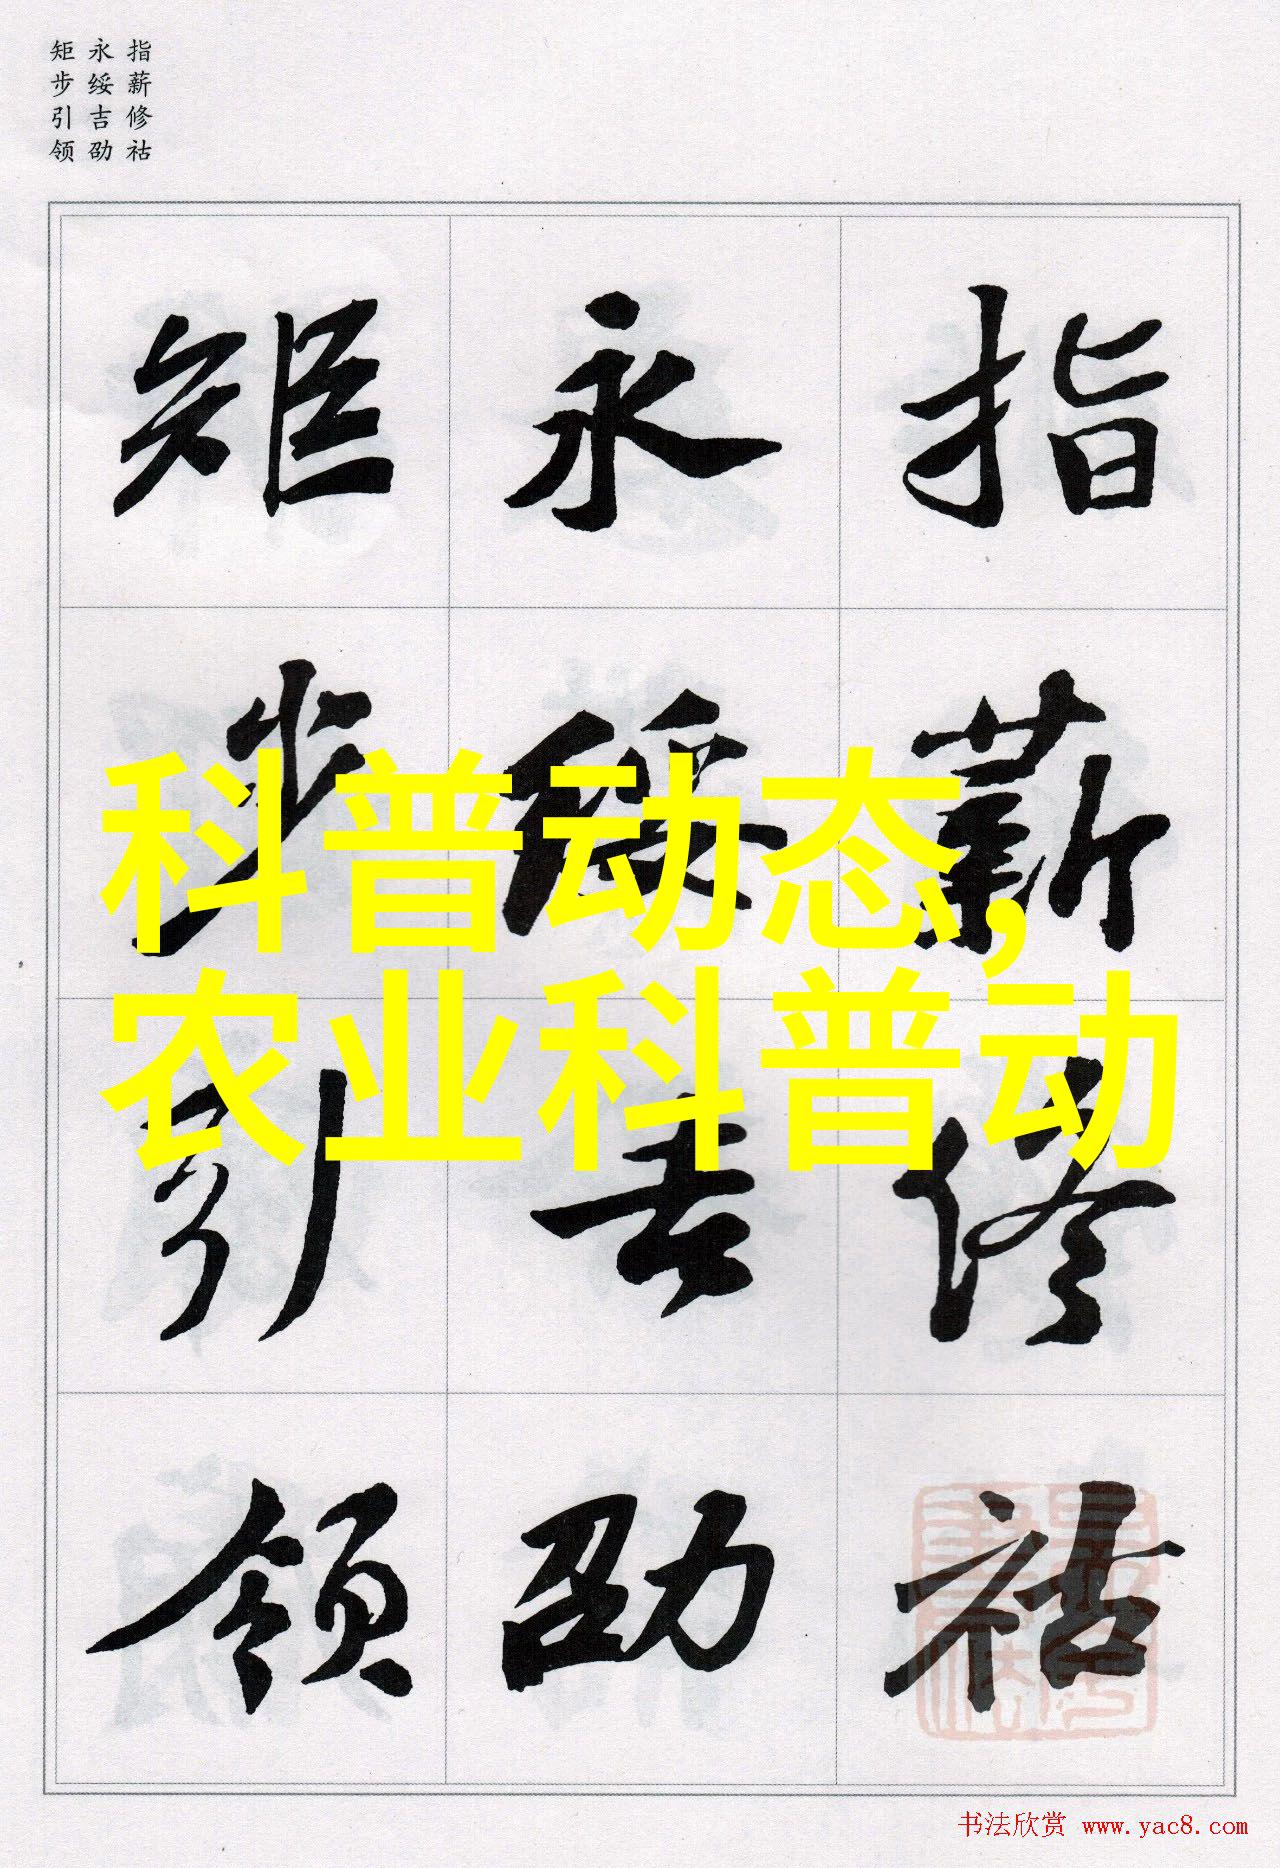 指薪修祜
永绥吉劭
矩步引领
指薪修祜
永绥吉劭
矩步引领
科普动态,
农业科普动
书法欣赏 www.yac8.com